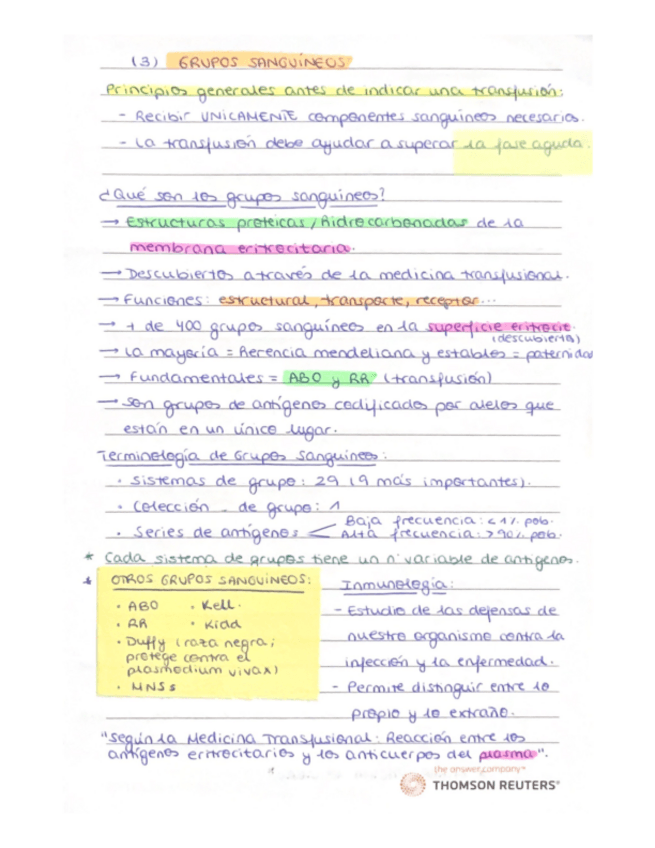 (3) GRUPOS SANGUÍNEOS
Principios generales antes de indicar una transfusión:
- Recibir UNICAMENTE componentes sanguíneos necesarios.
- La transfusión debe ayudar a superar la fase aguda.
¿Qué son los grupos sanguíneos?
→ Estructuras proteicas/hidrocarbonadas de la
membrana eritrocitaria.
→ Descubiertos a través de la medicina transfusional.
→ Funciones: estructural, transporte, receptor...
→ + de 400 grupos sanguíneos en la superficie eritrocit.
(descubierta)
→ La mayoría = herencia mendeliana y estables = paternidad
→ Fundamentales = ABO y RR (transfusión)
→ Son grupos de antígenos codificados por alelos que
están en un único lugar.
Terminología de Grupos Sanguíneos:
· Sistemas de grupo: 29 (9 más importantes).
· Colección de grupo: 1
· Series de antígenos < Baja frecuencia: <1% pob.
Alta frecuencia: >90% pob.
* Cada sistema de grupos tiene un nº variable de antígenos.
* OTROS GRUPOS SANGUÍNEOS:
· ABO · Kell.
· RR · Kidd
· Duffy (raza negra;
protege contra el
plasmodium vivax)
· MNSs
Inmunología:
- Estudio de las defensas de
nuestro organismo contra la
infección y la enfermedad.
- Permite distinguir entre lo
propio y lo extraño.
"Según la Medicina Transfusional: Reacción entre los
antígenos eritrocitarios y los anticuerpos del plasma".
the answer company™
THOMSON REUTERS®